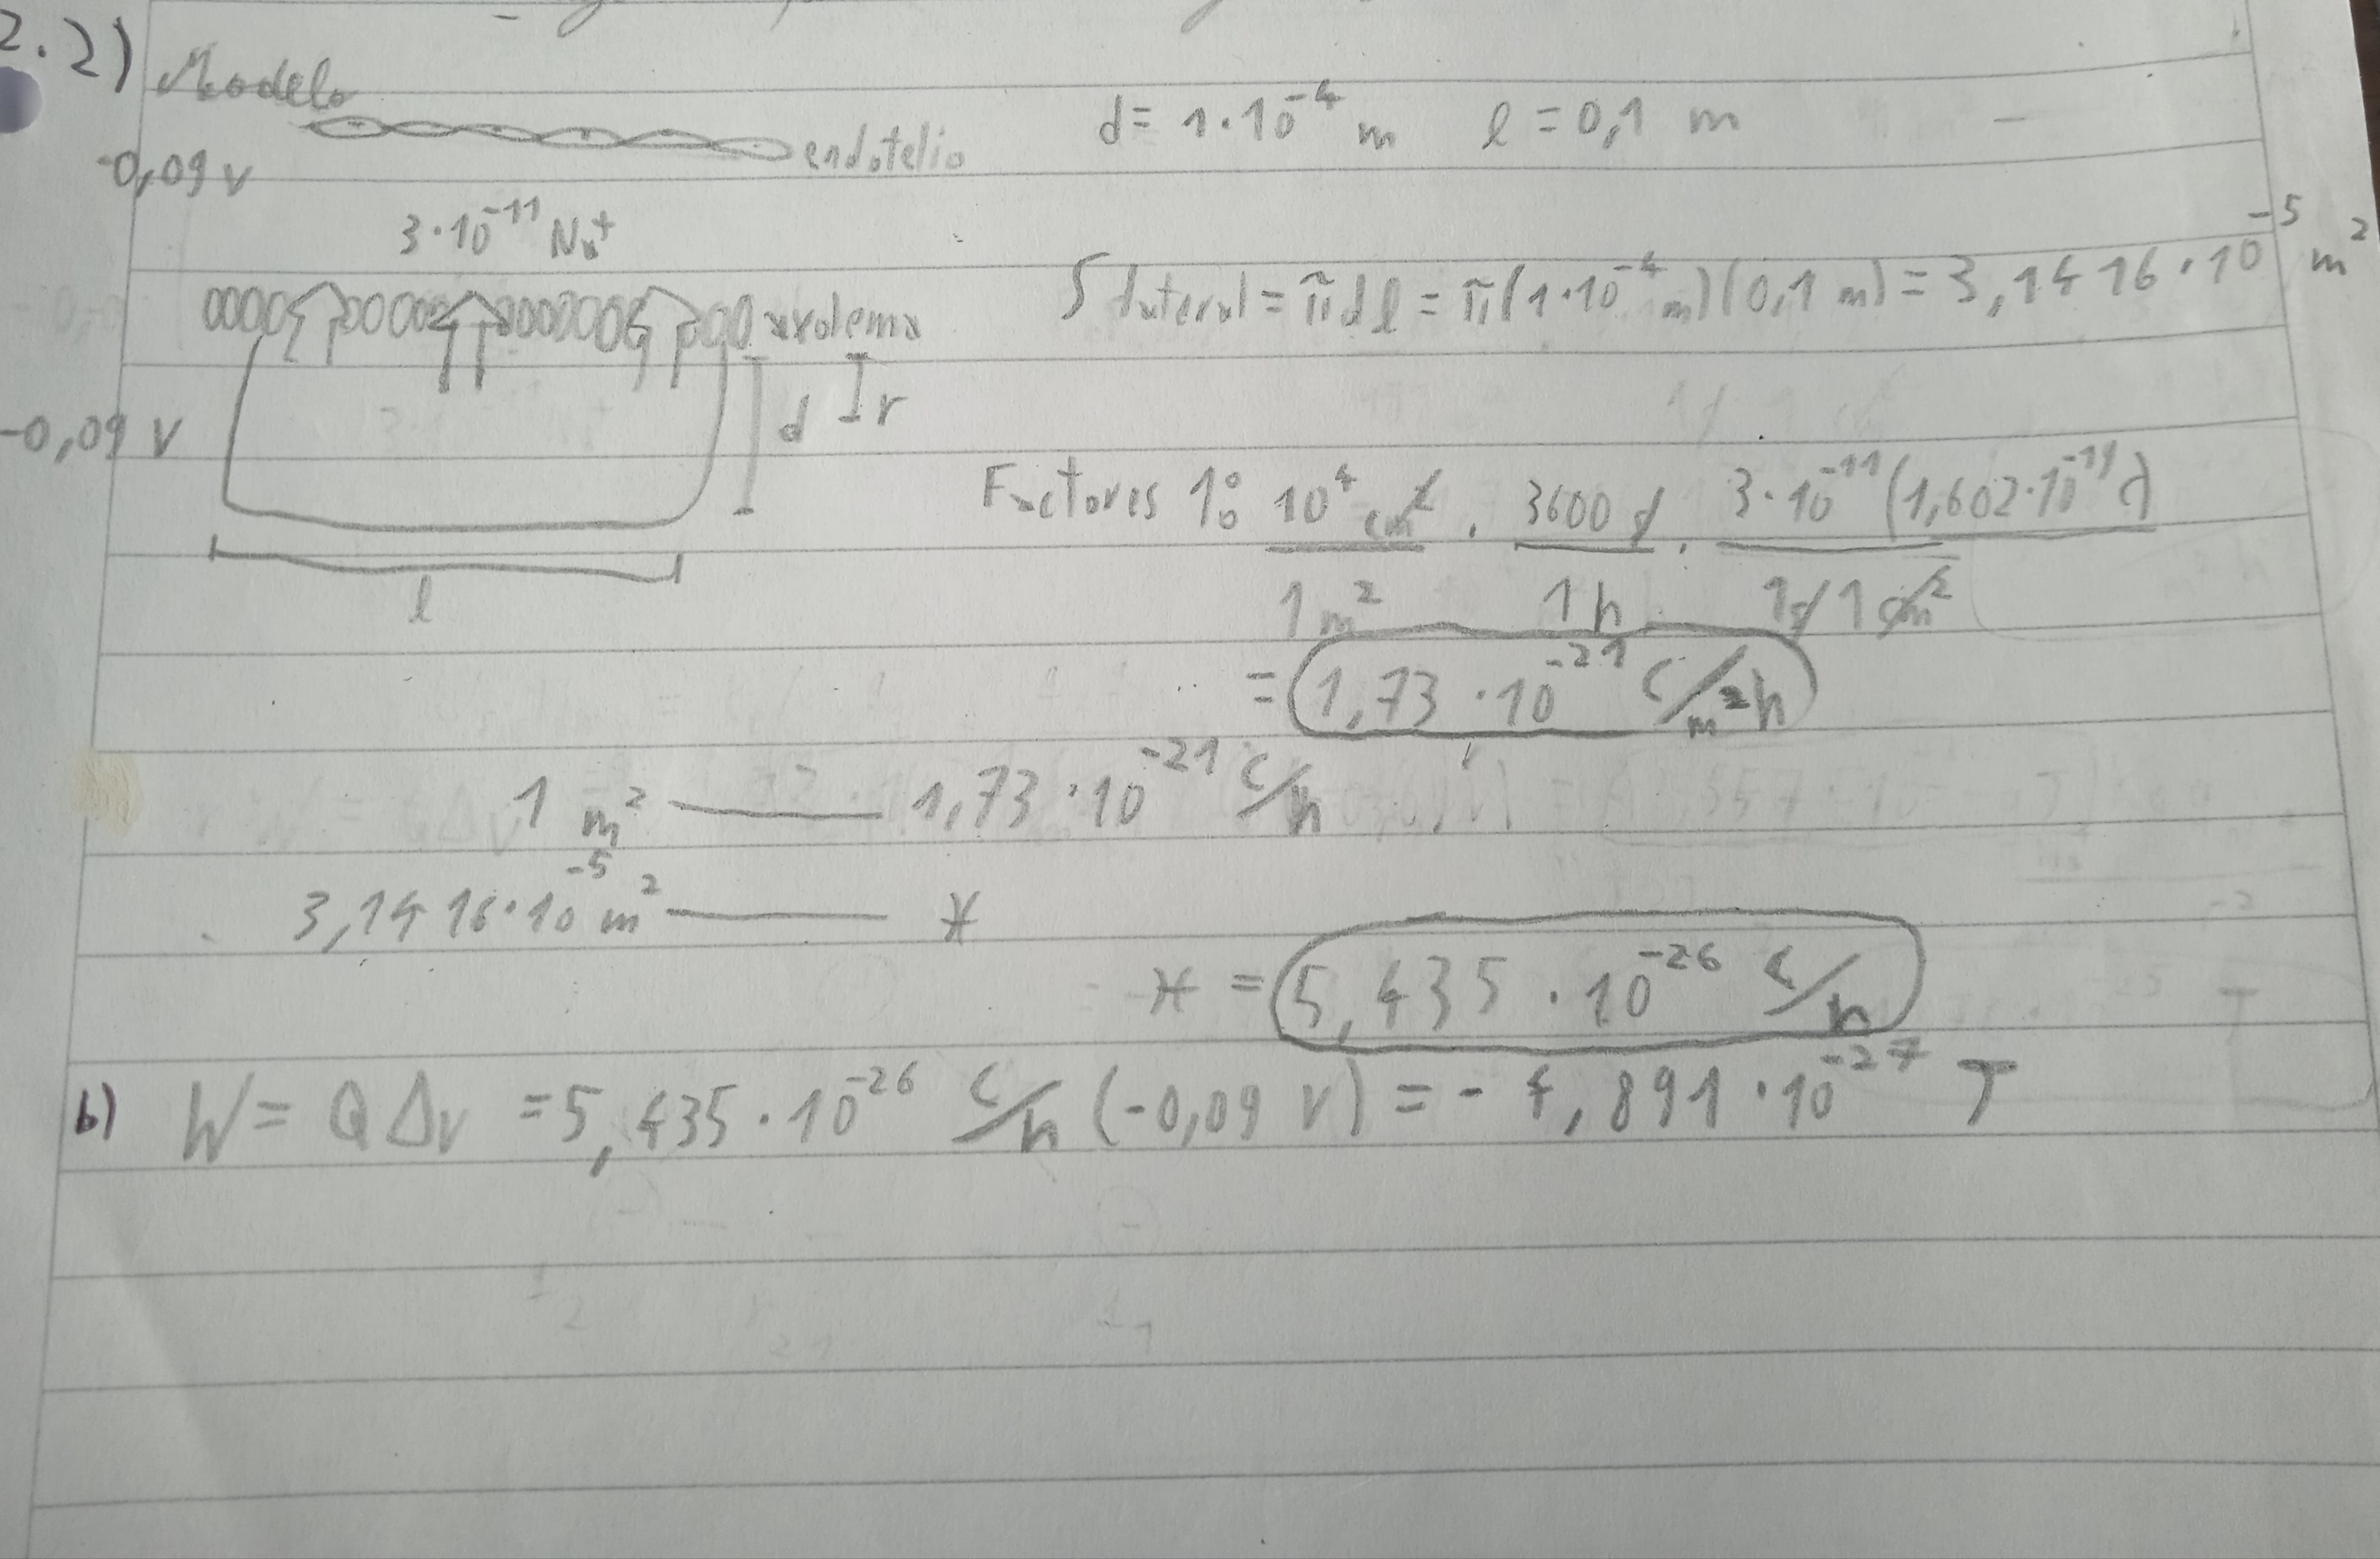 2.2) Modelo
endotelio
d = 1·10⁻⁴ m l = 0,1 m
-0,09 v
3·10⁻¹¹ Na⁺
S lateral = π d l = π(1·10⁻⁴ m)(0,1 m) = 3,1416·10⁻⁵ m²
d r
-0,09 v
l
Factores 1: 10⁴ cm² / 1 m² · 3600 s / 1 h · 3·10⁻¹¹ (1,602·10⁻¹⁹ C) / 1 s 1 cm²
= 1,73·10⁻²¹ C/m²h
1 m² —— 1,73·10⁻²¹ C/h
3,1416·10⁻⁵ m² —— x
x = 5,435·10⁻²⁶ C/h
b) W = Q ΔV = 5,435·10⁻²⁶ C/h (-0,09 V) = - 4,891·10⁻²⁷ J